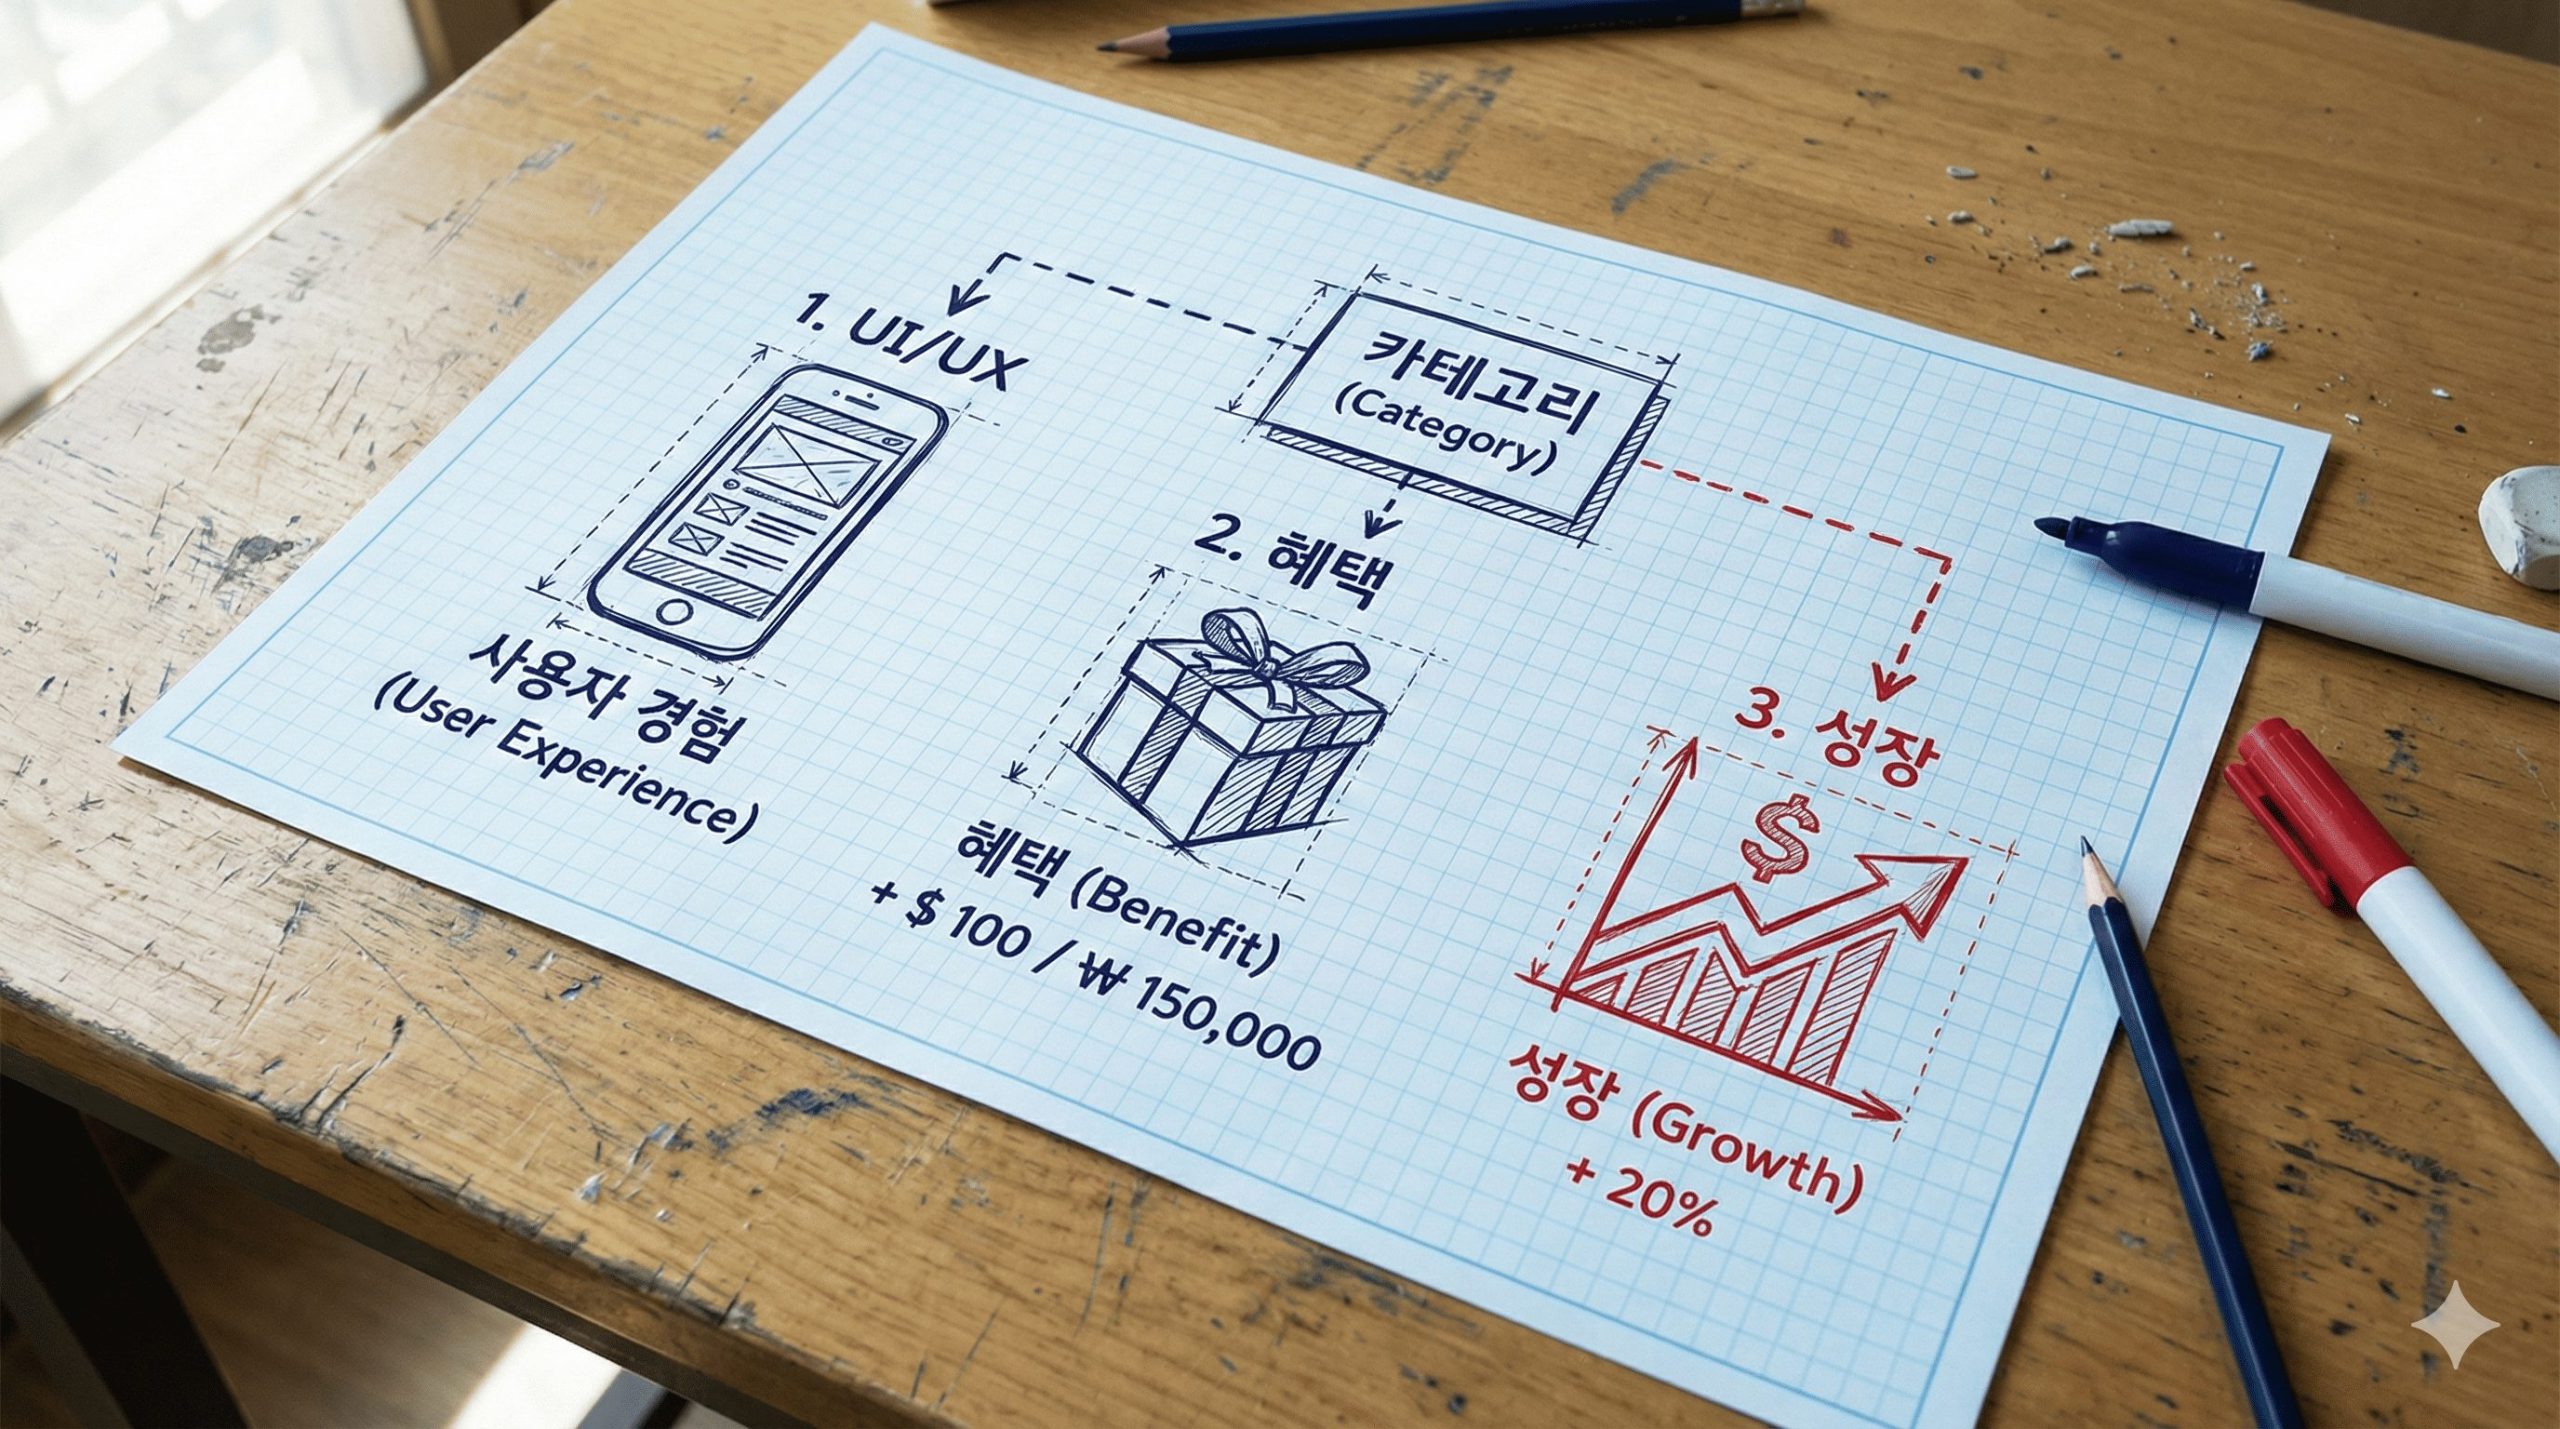 카테고리
(Category)
1. UI/UX
사용자 경험
(User Experience)
2. 혜택
혜택 (Benefit)
+ $ 100 / ₩ 150,000
3. 성장
$
성장 (Growth)
+ 20%